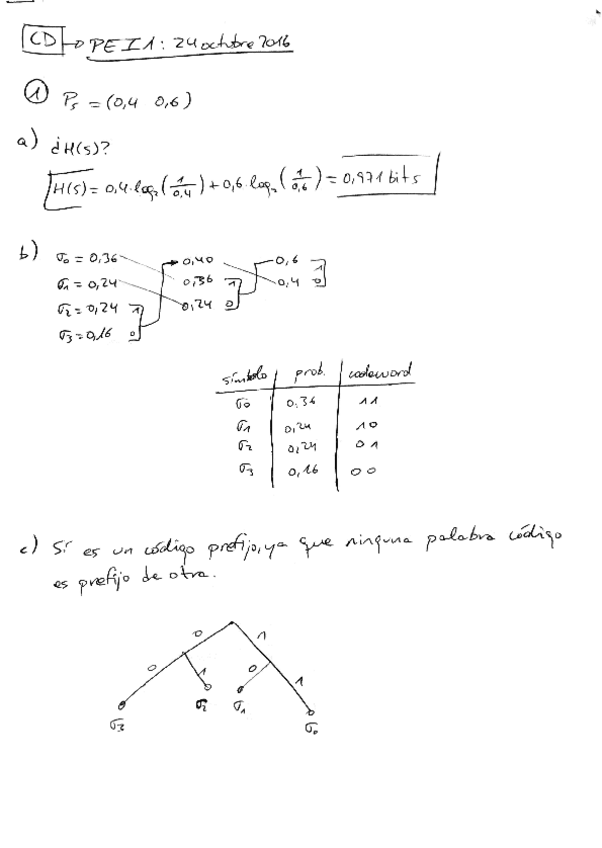 CD → PEI 1: 24 octubre 2016
① Ps = (0,4 0,6)
a) ¿H(s)?
H(s) = 0,4·log₂(1/0,4) + 0,6·log₂(1/0,6) = 0,971 bits
b) σ₀ = 0,36 0,40 0,6 1
σ₁ = 0,24 0,36 1 0,4 0
σ₂ = 0,24 1 0,24 0
σ₃ = 0,16 0
símbolo prob. codeword
σ₀ 0,36 11
σ₁ 0,24 10
σ₂ 0,24 01
σ₃ 0,16 00
c) Sí es un código prefijo, ya que ninguna palabra código
es prefijo de otra.
0 1
0 1 0 1
σ₃ σ₂ σ₁ σ₀